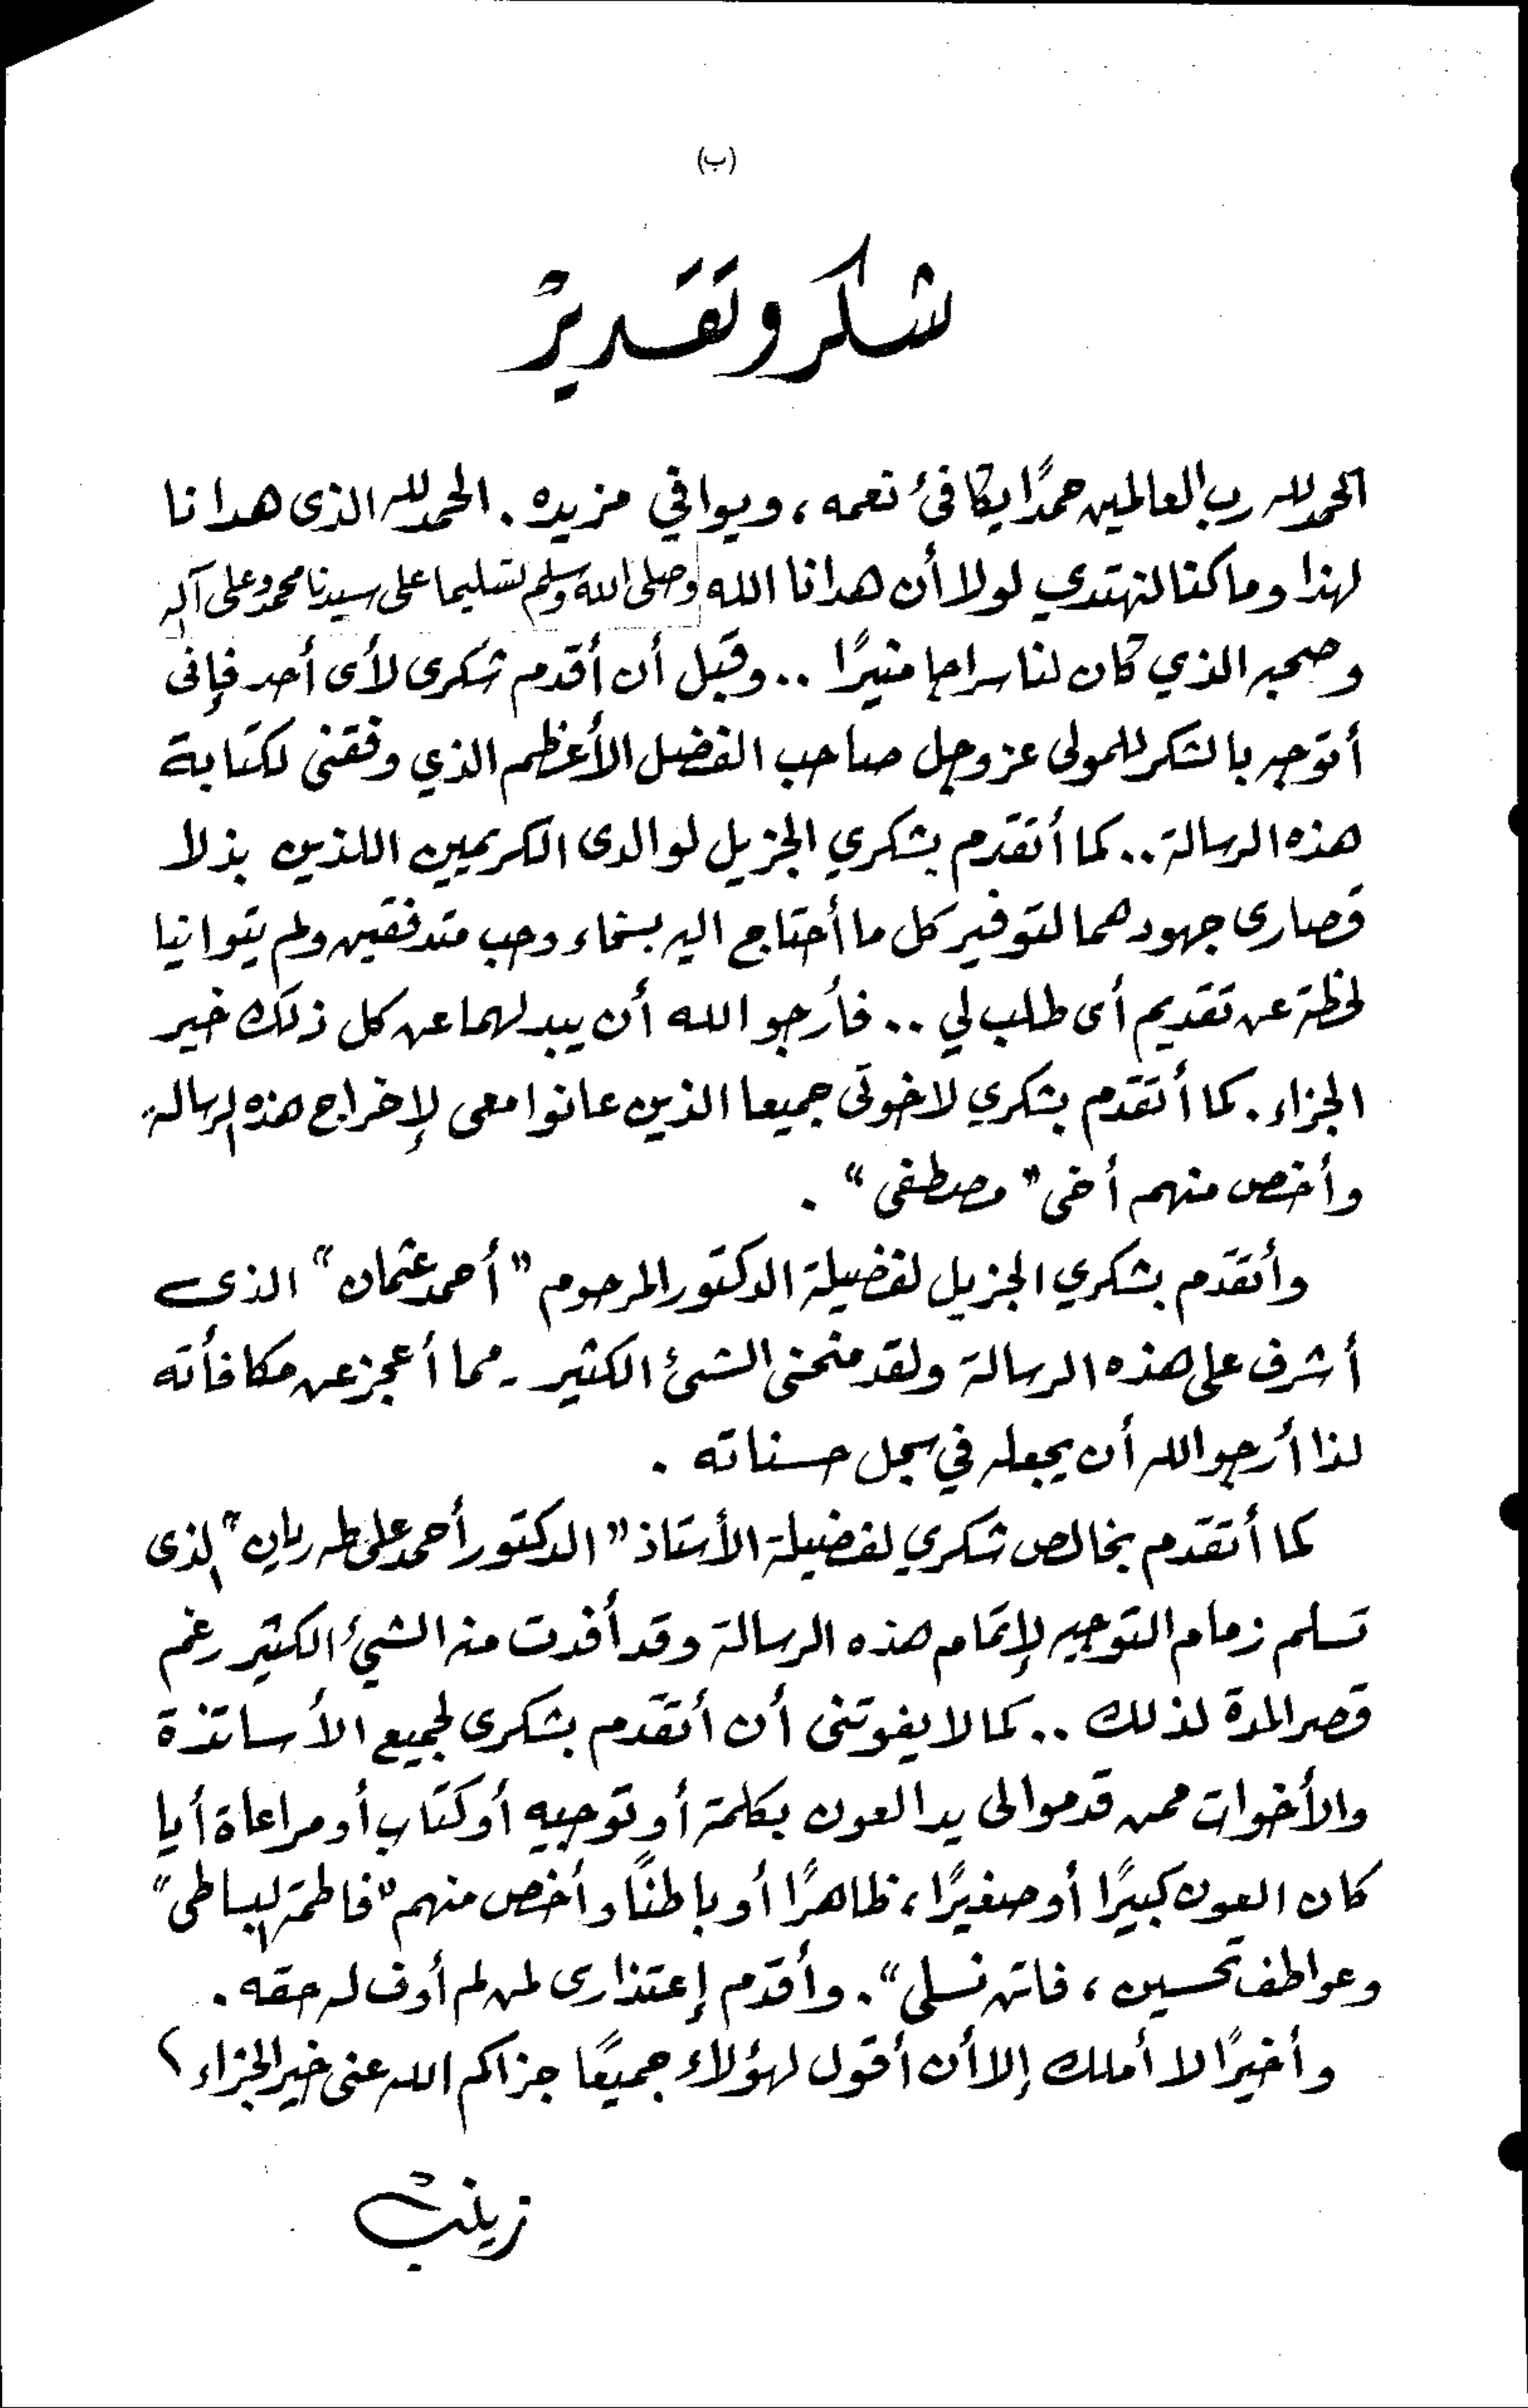 (ب)
شكر وتقدير
الحمد لله رب العالمين حمدًا يكافئ نعمه، ويوافي مزيده. الحمد لله الذى هدانا
لهذا وما كنا لنهتدي لولا أن هدانا الله وصلى الله وسلم تسليما على سيدنا محمد وعلى آله
وصحبه الذي كان لنا سراجا منيرًا .. وقبل أن أقدم شكرى لأى أحد فإنى
أتوجه بالشكر للمولى عز وجل صاحب الفضل الأعظم الذي وفقنى لكتابة
هذه الرسالة .. كما أتقدم بشكري الجزيل لوالدى الكريمين اللذين بذلا
قصارى جهودهما لتوفير كل ما أحتاج اليه بسخاء وحب متدفقين ولم يتوانيا
لحظة عن تقديم أى طلب لي .. فأرجو الله أن يبدلهما عن كل ذلك خير
الجزاء. كما أتقدم بشكري لاخوتى جميعا الذين عانوا معى لإخراج هذه الرسالة
وأخص منهم أخى "مصطفى" .
وأتقدم بشكري الجزيل لفضيلة الدكتور المرحوم "أحمد عثمان" الذى
أشرف على هذه الرسالة ولقد منحنى الشئ الكثير - مما أعجز عن مكافأته
لذا أرجو الله أن يجعله في سجل حسناته .
كما أتقدم بخالص شكري لفضيلة الأستاذ "الدكتور أحمد على طه ريان" الذى
تسلم زمام التوجيه لإتمام هذه الرسالة وقد أفدت منه الشيء الكثير رغم
قصر المدة لذلك .. كما لا يفوتنى أن أتقدم بشكرى لجميع الأساتذة
والأخوات ممن قدموا لى يد العون بكلمة أو توجيه أو كتاب أو مراعاة أيا
كان العون كبيرًا أو صغيرًا، ظاهرًا أو باطنًا وأخص منهم "فاطمة البساطى"
وعواطف تحسين، فاتن نسلى". وأقدم إعتذارى لمن لم أوف له حقه .
وأخيرًا لا أملك إلا أن أقول لهؤلاء جميعًا جزاكم الله عنى خير الجزاء ،
زينب